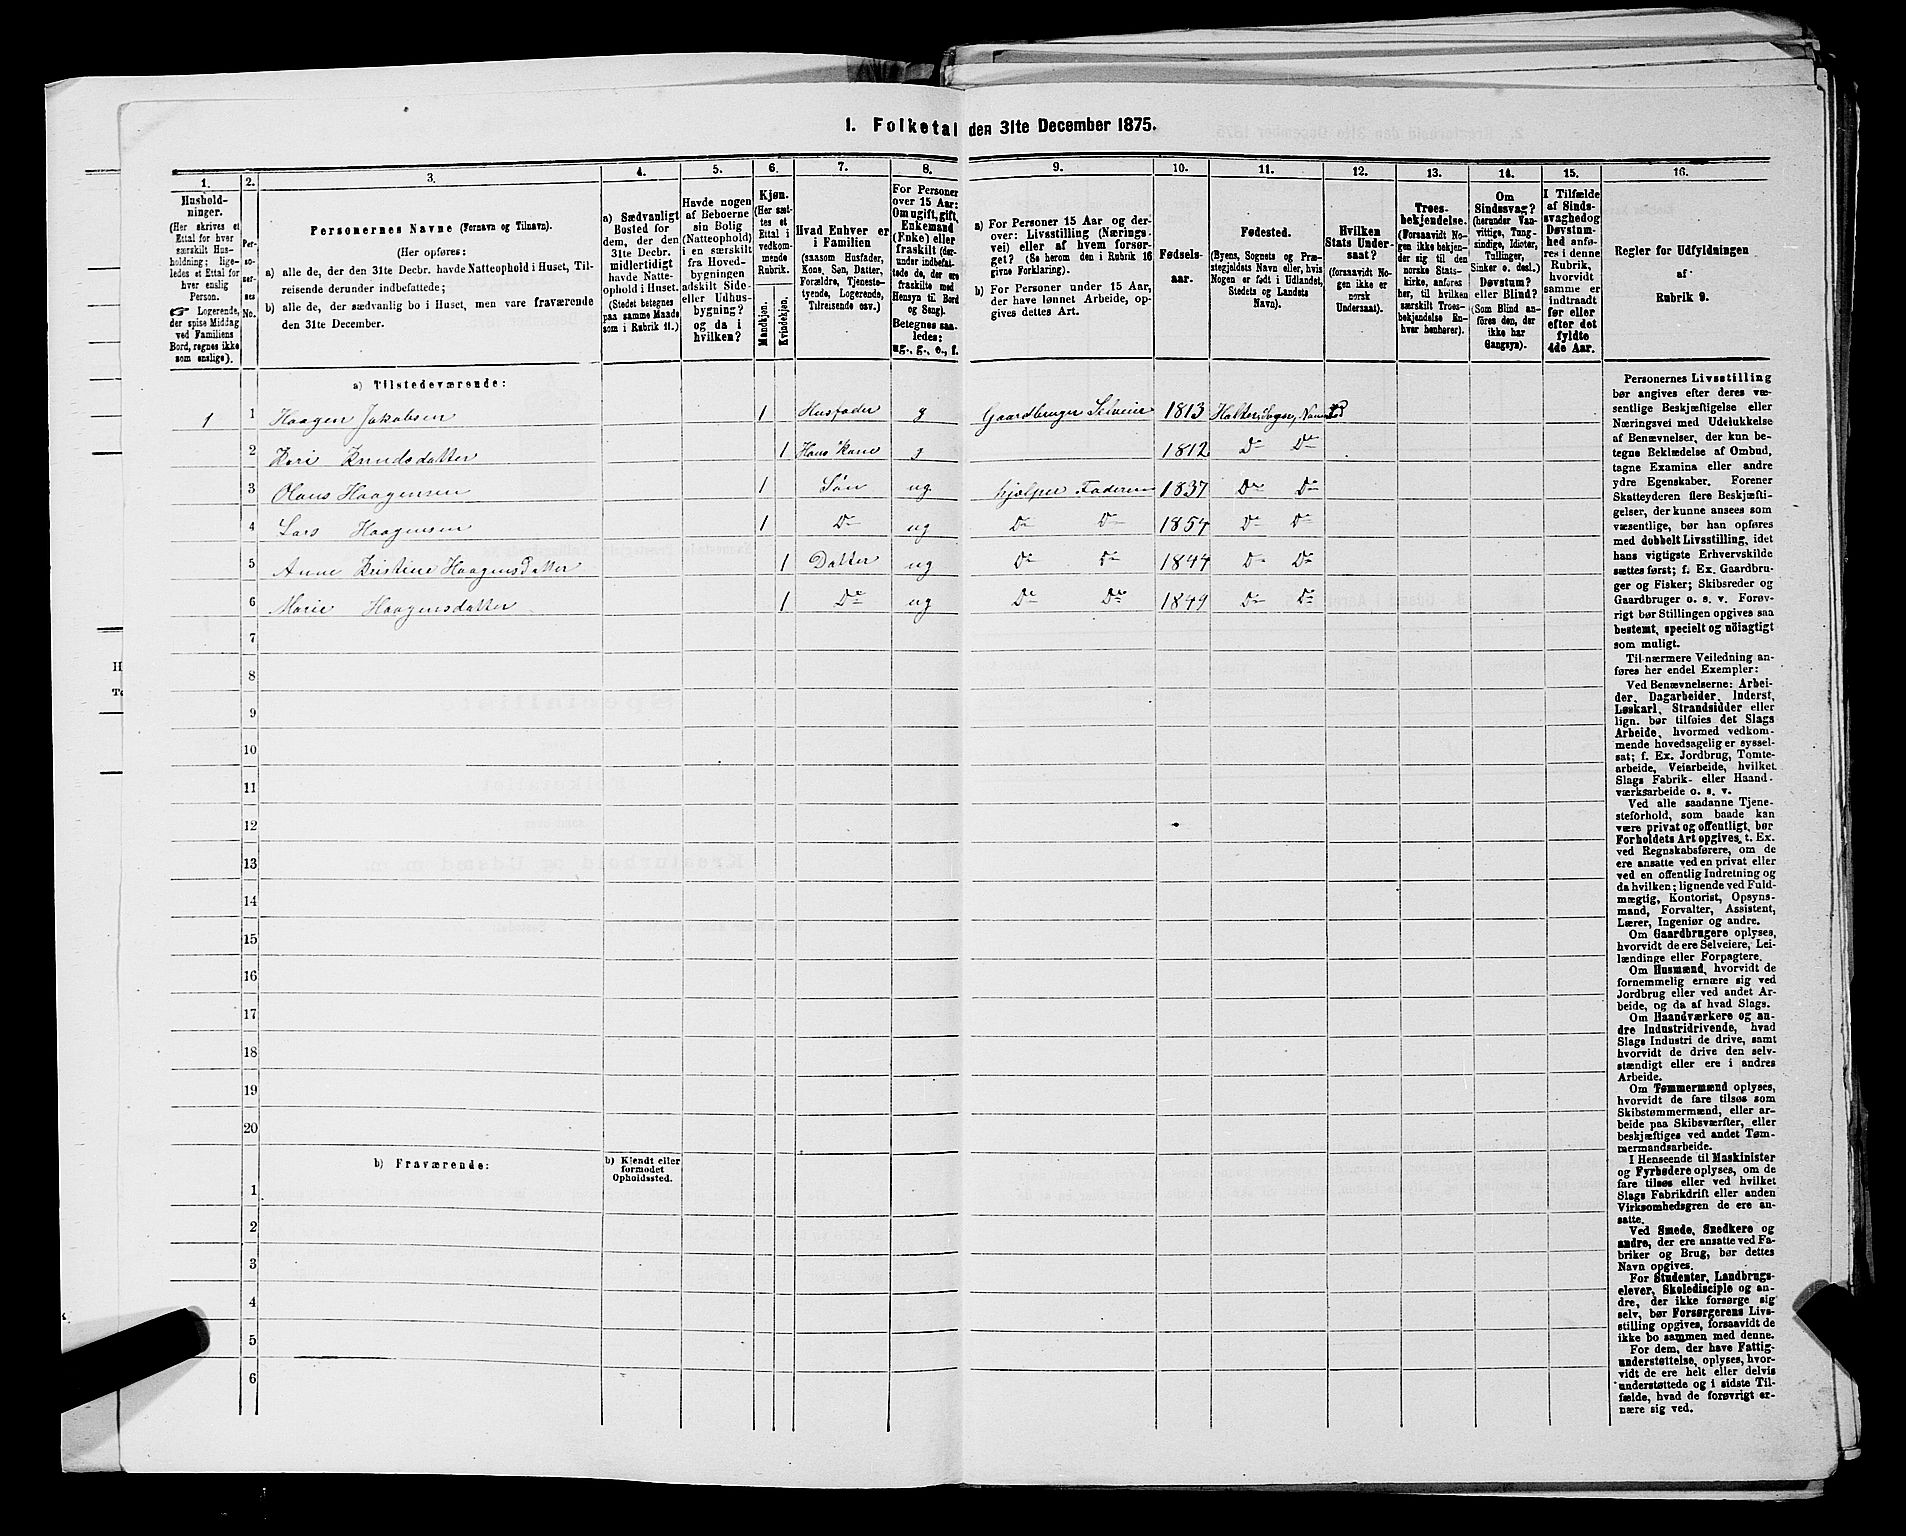 1. Folketal den 31te December 1875.
1. 2. 3. 4. 5. 6. 7. 8. 9. 10. 11. 12. 13. 14. 15. 16.
Husholdninger.
(Her skrives et
Ettal for hver
særskilt Husholdning;
ligeledes et Ettal for
hver enslig
Person.
☛ Logerende,
der spise Middag
ved Familiens
Bord, regnes ikke
som enslige).
Personernes No.
Personernes Navne (Fornavn og Tilnavn).
(Her opføres:
a) alle de, der den 31te Decbr. havde Natteophold i Huset, Tilreisende derunder indbefattede;
b) alle de, der sædvanlig bo i Huset, men vare fraværende
den 31te December.
a) Sædvanligt
Bosted for
dem, der den
31te Decbr.
midlertidigt
havde Natteophold i Huset.
(Stedet betegnes
paa samme Maade
som i Rubrik 11.)
Havde nogen
af Beboerne
sin Bolig
(Natteophold)
i en særskilt
fra Hovedbygningen
adskilt Side-
eller Udhusbygning?
og da i
hvilken?
Kjøn.
(Her sættes et
Ettal i
vedkommende
Rubrik.
Mandkjøn.
Kvindekjøn.
Hvad Enhver er
i Familien
(saasom Husfader,
Kone, Søn, Datter,
Forældre, Tjenestetyende, Logerende,
Tilreisende osv.)
For Personer
over 15 Aar:
Om ugift, gift,
Enkemand
(Enke) eller
fraskilt (derunder indbefattede de, der ere
fraskilte med
Hensyn til Bord
og Seng).
Betegnes saaledes:
ug., g., e., f.
a) For Personer 15 Aar og derover: Livsstilling (Næringsvei) eller af hvem forsørget? (Se herom den i Rubrik 16
givne Forklaring).
b) For Personer under 15 Aar,
der have lønnet Arbeide, opgives dettes Art.
Fødselsaar.
Fødested.
(Byens, Sognets og Præstegjeldets Navn eller, hvis
Nogen er født i Udlandet,
Stedets og Landets
Navn).
Hvilken
Stats Undersaat?
(forsaavidt Nogen ikke er
norsk
Undersaat).
Troesbekjendelse.
(Forsaavidt Nogen ikke bekjender sig til den
norske Statskirke, anføres
her, til hvilken
særskilt Troesbekjendelse Enhver henhører).
Om
Sindssvag?
(herunder Vanvittige, Tungsindige, Idioter,
Tullinger,
Sinker o. desl.)
Døvstum?
eller Blind?
(Som Blind anføres den, der
ikke har
Gangsyn).
I Tilfælde
af Sindssvaghed og
Døvstumhed anføres i denne
Rubrik,
hvorvidt
samme er
indtraadt
før eller
efter det
fyldte
4de Aar.
Regler for Udfyldningen
af
Rubrik 9.
a) Tilstedeværende:
1 1 Haagen Jakobsen 1 Husfader g Gaardbruger Selveier 1813
2 Kari Knudsdatter 1 Hans Kone g 1812 Do Do
3 Olaus Haagensen 1 Søn ug hjelper Faderen 1837 Do Do
4 Lars Haagensen 1 Do ug Do Do 1854 Do Do
5 Anne Kristine Haagensdatter 1 Datter ug Do Do 1844 Do Do
6 Marie Haagensdatter 1 Do ug Do Do 1849 Do Do
7
8
9
10
11
12
13
14
15
16
17
18
19
20
b) Fraværende:
b) Kjendt eller
formodet
Opholdssted.
1
2
3
4
5
6
Personernes Livsstilling
bør angives efter deres væsentlige Beskjæftigelse eller
Næringsvei med Udelukkelse
af Benævnelser, der kun betegne Beklædelse af Ombud,
tagne Examina eller andre
ydre Egenskaber. Forener
Skatteyderen flere Beskjæftigelser, der kunne ansees som
væsentlige, bør han opføres
med dobbelt Livsstilling, idet
hans vigtigste Erhvervskilde
sættes først; f. Ex. Gaardbruger og Fisker; Skibsreder og
Gaardbruger o. s. v. Forøvrigt bør Stillingen opgives saa
bestemt, specielt og nøiagtigt
som muligt.
Til nærmere Veiledning anføres her endel Exempler:
Ved Benævnelserne: Arbeider, Dagarbeider, Inderst,
Løskarl, Strandsidder eller
lign. bør tilføies det Slags
Arbeide, hvormed vedkommende hovedsagelig er sysselsat; f. Ex. Jordbrug, Tomtearbeide, Veiarbeide, hvilket
Slags Fabrik- eller Haandværksarbeide o. s. v.
Ved alle saadanne Tjenesteforhold, som baade kan
være privat og offentligt, bør
Forholdets Art opgives, t. Ex.
ved Regnskabsførere, om de
ere ansatte ved en privat eller
ved en offentlig Indretning og
da hvilken; lignende ved Fuldmægtig, Kontorist, Opsynsmand, Forvalter, Assistent,
Lærer, Ingeniør og andre.
Om Gaardbrugere oplyses,
hvorvidt de ere Selveiere, Leilændinge eller Forpagtere.
Om Husmænd, hvorvidt de
fornemmelig ernære sig ved
Jordbrug eller ved andet Arbeide, og da af hvad Slags.
Om Haandværkere og andre Industridrivende, hvad
Slags Industri de drive, samt
hvorvidt de drive den selvstændigt eller ere i andres
Arbeide.
Om Tømmermænd oplyses,
hvorvidt de fare tilsøs som
Skibstømmermænd, eller arbeide paa Skibsværfter, eller
beskjæftiges ved andet Tømmermandsarbeide.
I Henseende til Maskinister
og Fyrbødere oplyses, om de
fare tilsøs eller ved hvilket
Slags Fabrikdrift eller anden
Virksomhedsgren de ere ansatte.
Ved Smede, Snedkere og
andre, der ere ansatte ved Fabriker og Brug, bør dettes
Navn opgives.
For Studenter, Landbrugselever, Skoledisciple og andre, der ikke forsørge sig
selv, bør Forsørgerens Livsstilling opgives, forsaavidt de
ikke bo sammen med denne.
For dem, der have Fattigunderstøttelse, oplyses, hvorvidt de ere helt eller delvis
understøttede og i sidste Tilfælde, hvad de forøvrigt ernære sig ved.